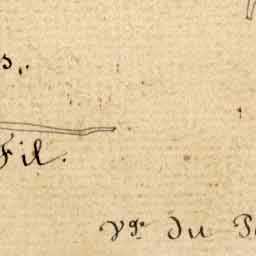 s.
Fil.
Vᵍᵉ du P